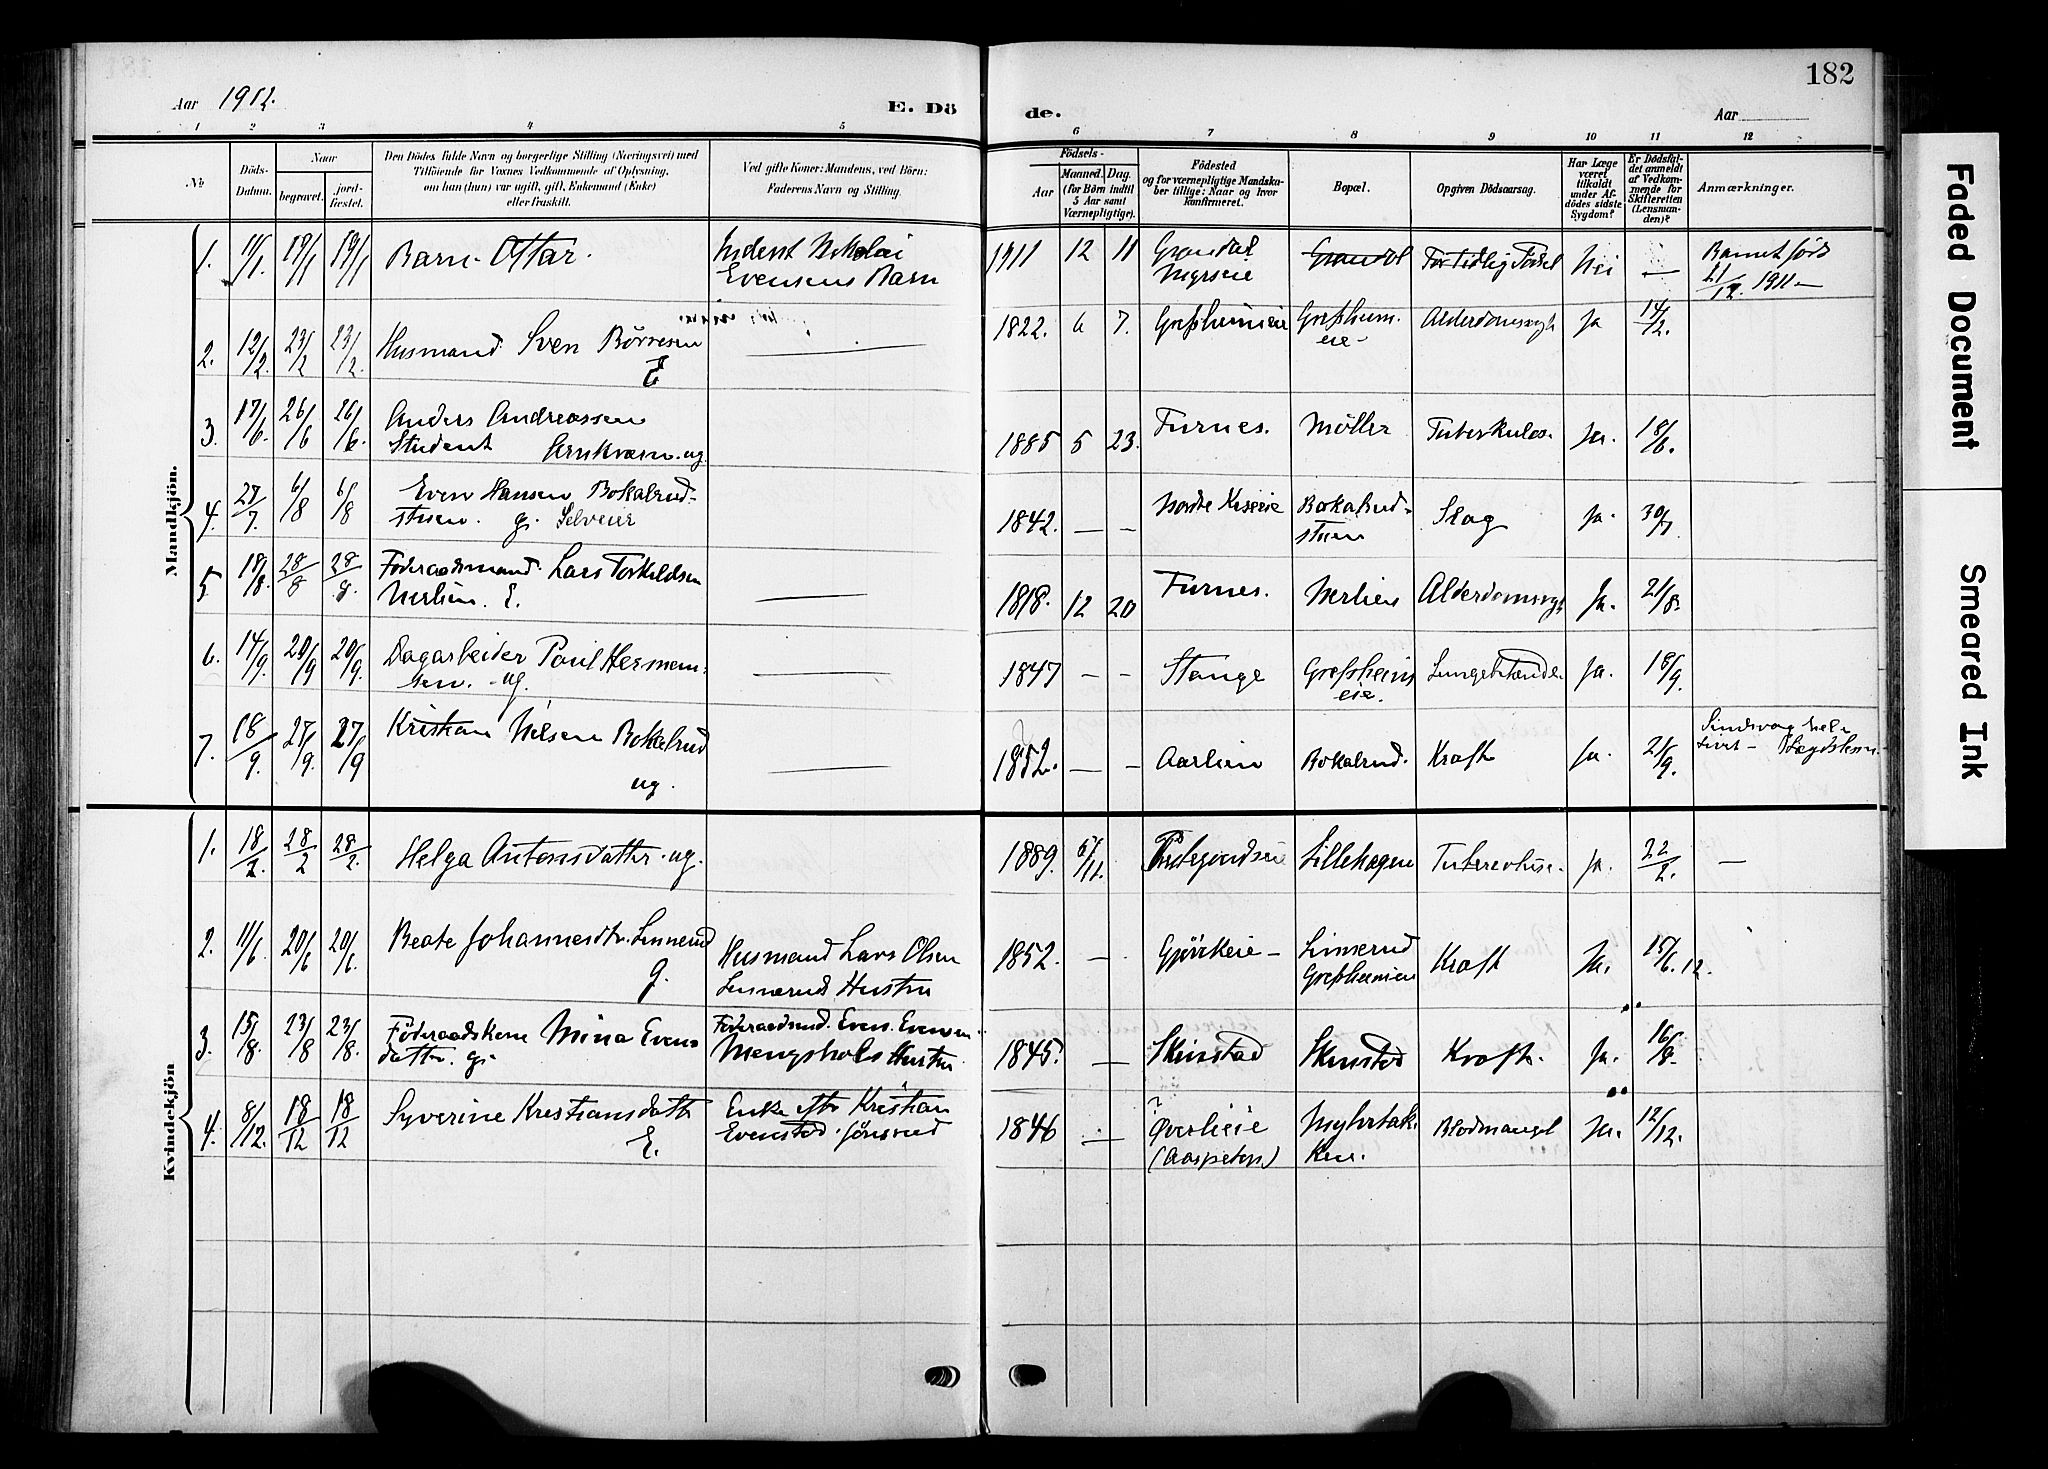 182
Aar 1912.
E. Döde.
Aar
1 2 3 4 5 6 7 8 9 10 11 12
No
Döds-Datum.
Naar
begravet.
jord-fæstet.
Den Dödes fulde Navn og borgerlige Stilling (Næringsvei) med
Tilföiende for Voxnes Vedkommende af Oplysning,
om han (hun) var ugift, gift, Enkemand (Enke)
eller fraskilt.
Ved gifte Koner: Mandens, ved Börn:
Faderens Navn og Stilling.
Födsels-
Aar
Maaned. Dag.
(for Börn indtil
5 Aar samt
Værnepligtige).
Födested
og for værnepligtige Mandska-
ber tillige: Naar og hvor
konfirmeret.
Bopæl.
Opgiven Dödsaarsag.
Har Læge
været
tilkaldt
under Af-
dödes sidste
Sygdom?
Er Dödsfal-
det anmeldt
af Vedkom-
mende for
Skifteretten
(Lensman-
den)?
Anmærkninger.
Mandkjön.
1. 11/1. 19/1 19/1 Barn Ottar. Nikolai
Evensens Barn
1911 12 11 Grandal Grandal For tidlig Födsel Nei — Barnet född
21/12. 1911 —
2. 12/2. 23/2 23/2. Husmand Sven Börresen
E
1822. 6 7. Grefsheimeie Grefsheim-
eie Alderdomssvgh Ja 14/2.
3. 17/6. 26/6 26/6. Anders Andreassen
Student ug.
1885 5 23. Furnes. Möller Tuberkulos. Ja. 18/6.
4. 27/7. 6/8 6/8 Even Hansen Bokalrud-
stuen. g. Selveier
1842. — — Bokalrud-
stuen Slag Ja. 30/7
5. 18/8. 28/8 28/8. Föderaadsmand Lars Torkildsen
Nerlien. E.
1818. 12 20 Furnes. Nerlien Alderdomsvgh Ja. 21/8.
6. 14/9. 20/9 20/9. Dagarbeider Paul Herman-
sen. ug.
1847 — — Stange Grefsheims
eie. Lungebetænde. Ja. 18/9.
7. 18/9. 27/9. 27/9 Kristian Nilsen Bokalrud
ug.
1852. — — Aarlien Bokalrud. Kraft Ja. 21/9.
Kvindekjön
1. 18/2. 28/2 28/2. Helga Antonsdatter. ug.
1889. 5/11. Lillehagen Tuberculose. Ja. 22/2. —
2. 11/6. 20/6 20/6. Beate Johannesdtr. Linnerud
g.
Husmand Lars Olsen
Linnerud Hustru
1852. — Gjövikeie — Linnerud
Grefsheimeie Kraft Ja. 15/6.12.
3. 15/8. 23/8 23/8. Föderaadskone Mina Evens
datter. g.
Föderaadsmd. Even Evensen
Mengshols Hustru
1845. — Skinstad Skinstad Kraft. Ja. 16/8.
4. 8/12. 18/12 18/12 Syverine Kristiansdatter
E.
Enke efter Kristian
Evenstad
1846 — ?
Överlieie
Blodmangel Ja. 12/12.
Faded Document
Smeared Ink